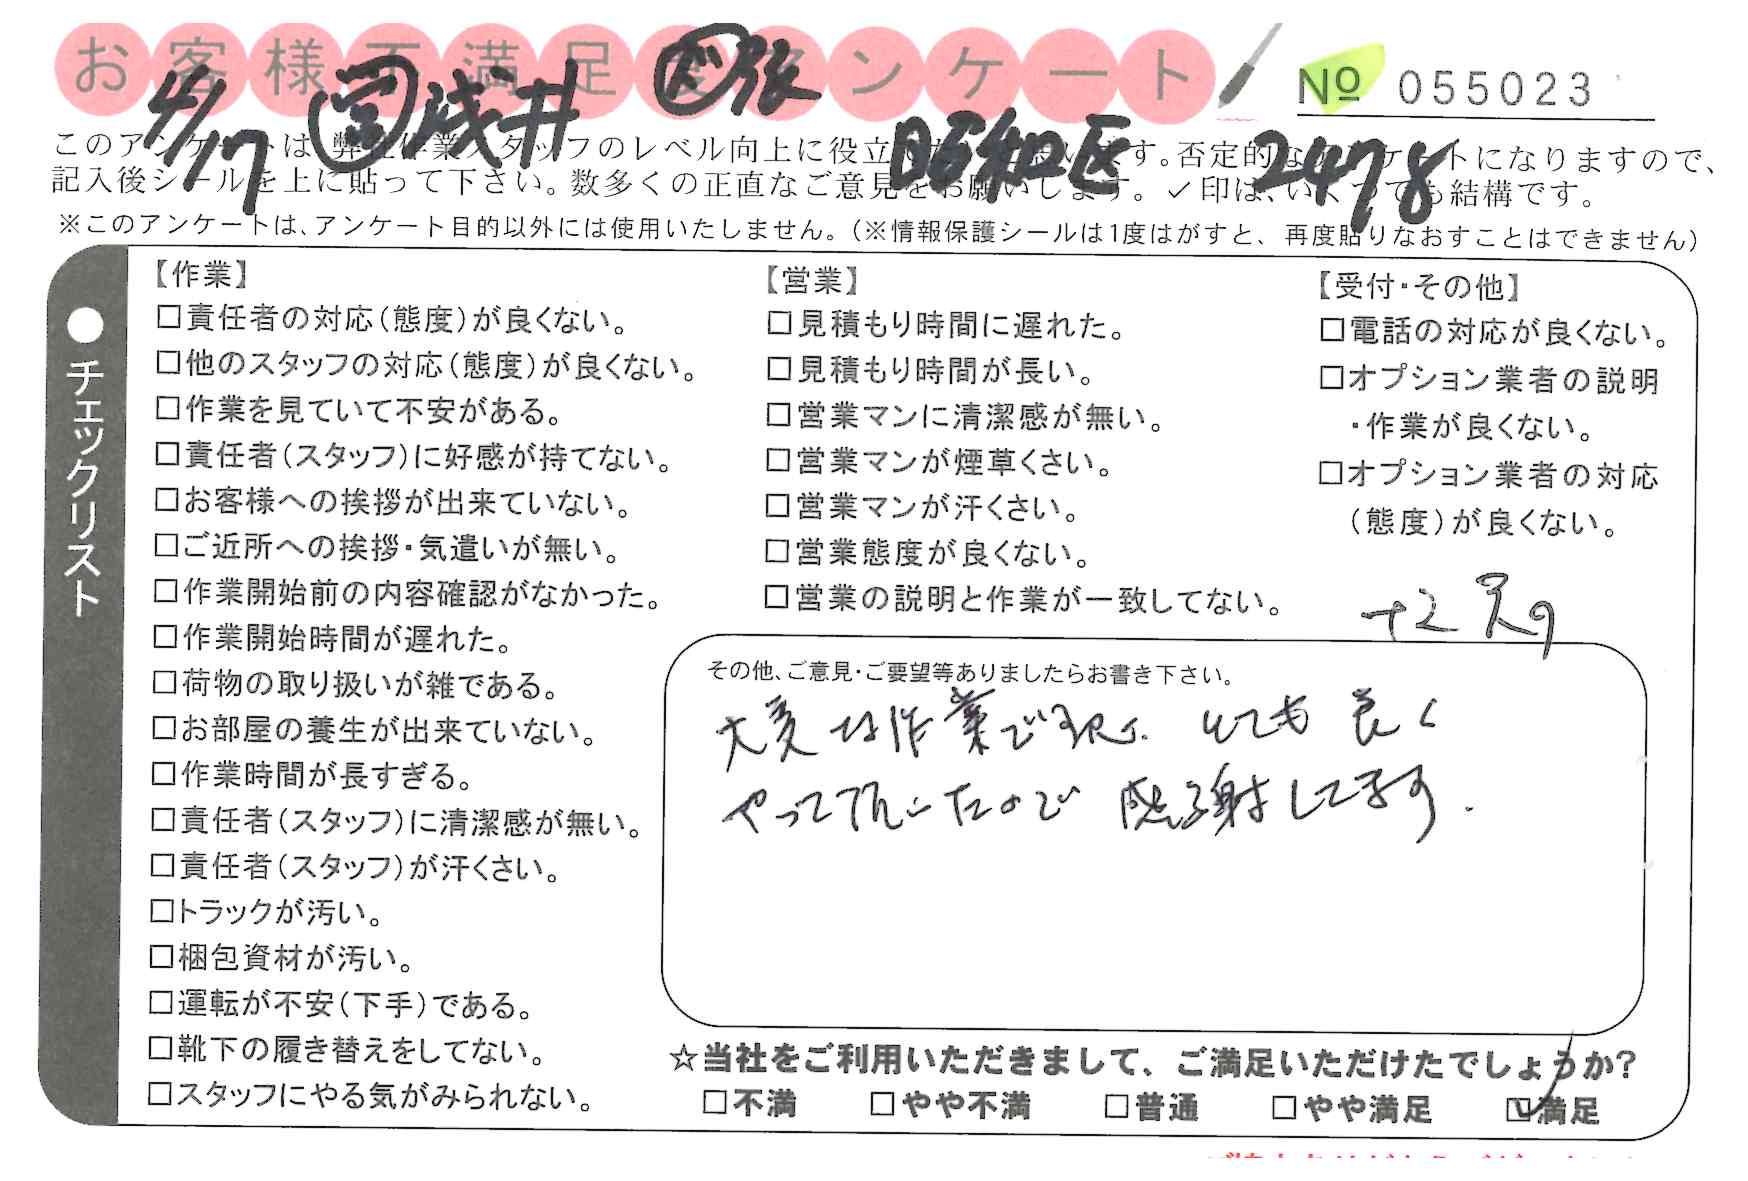 お客様不満足度アンケート
№ 055023
4/17 営 浅井 張 昭和区 2478
このアンケートは、弊社作業スタッフのレベル向上に役立てたいと思います。否定的なアンケートになりますので、
記入後シールを上に貼って下さい。数多くの正直なご意見をお願いします。✓印は、いくつでも結構です。
※このアンケートは、アンケート目的以外には使用いたしません。(※情報保護シールは1度はがすと、再度貼りなおすことはできません)
●チェックリスト
【作業】
□責任者の対応(態度)が良くない。
□他のスタッフの対応(態度)が良くない。
□作業を見ていて不安がある。
□責任者(スタッフ)に好感が持てない。
□お客様への挨拶が出来ていない。
□ご近所への挨拶・気遣いが無い。
□作業開始前の内容確認がなかった。
□作業開始時間が遅れた。
□荷物の取り扱いが雑である。
□お部屋の養生が出来ていない。
□作業時間が長すぎる。
□責任者(スタッフ)に清潔感が無い。
□責任者(スタッフ)が汗くさい。
□トラックが汚い。
□梱包資材が汚い。
□運転が不安(下手)である。
□靴下の履き替えをしてない。
□スタッフにやる気がみられない。
【営業】
□見積もり時間に遅れた。
□見積もり時間が長い。
□営業マンに清潔感が無い。
□営業マンが煙草くさい。
□営業マンが汗くさい。
□営業態度が良くない。
□営業の説明と作業が一致してない。
【受付・その他】
□電話の対応が良くない。
□オプション業者の説明
・作業が良くない。
□オプション業者の対応
(態度)が良くない。
その他、ご意見・ご要望等ありましたらお書き下さい。
大変な作業で とても良く
やって頂いたので 感謝してます.
☆当社をご利用いただきまして、ご満足いただけたでしょうか?
□不満 □やや不満 □普通 □やや満足 ☑満足